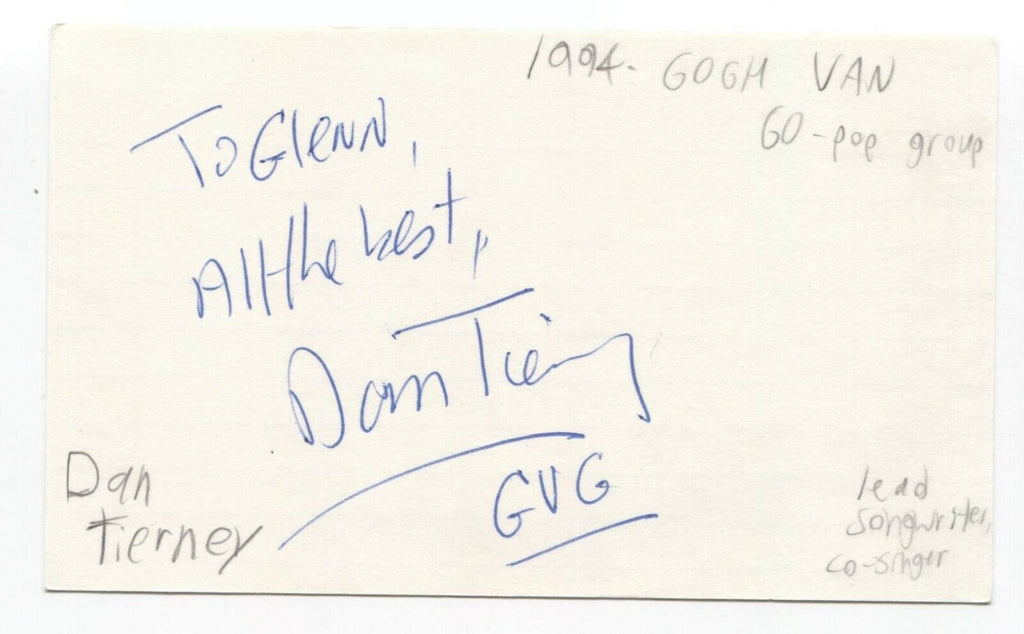 1994- GOGH VAN
GO - pop group
To Glenn,
All the best,
Dan Tierney
GVG
Dan
Tierney
lead
songwriter,
co-singer